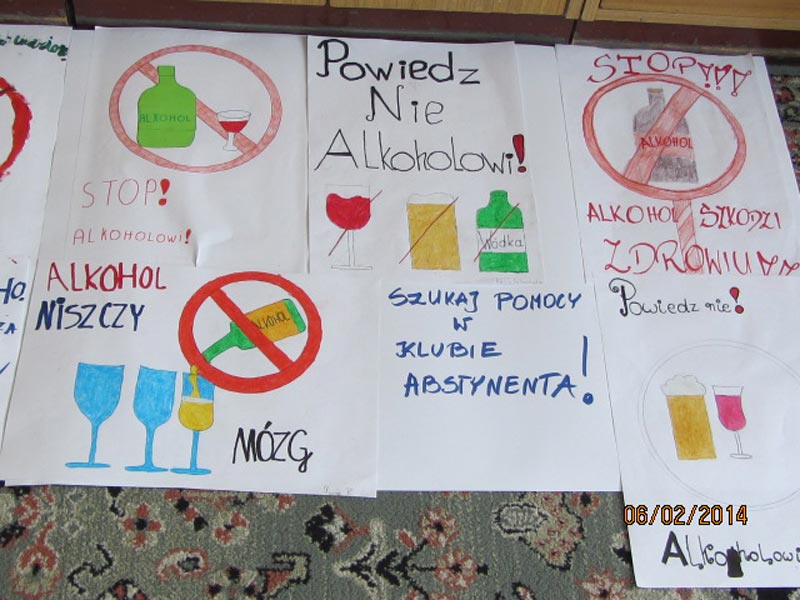 ALKOHOL
STOP!
ALKOHOLOWI!
POWIEDZ
NiE
ALkoholowi!
Wódka
STOP!!!
ALKOHOL
ALKOHOL SZKODZI
ZDROWIU!!
ALKOHOL
NISZCZY
ALKOHOL
MÓZG
SZUKAJ POMOCY
W
KLUBIE
ABSTYNENTA!
Powiedz nie!
ALkoholowi
06/02/2014